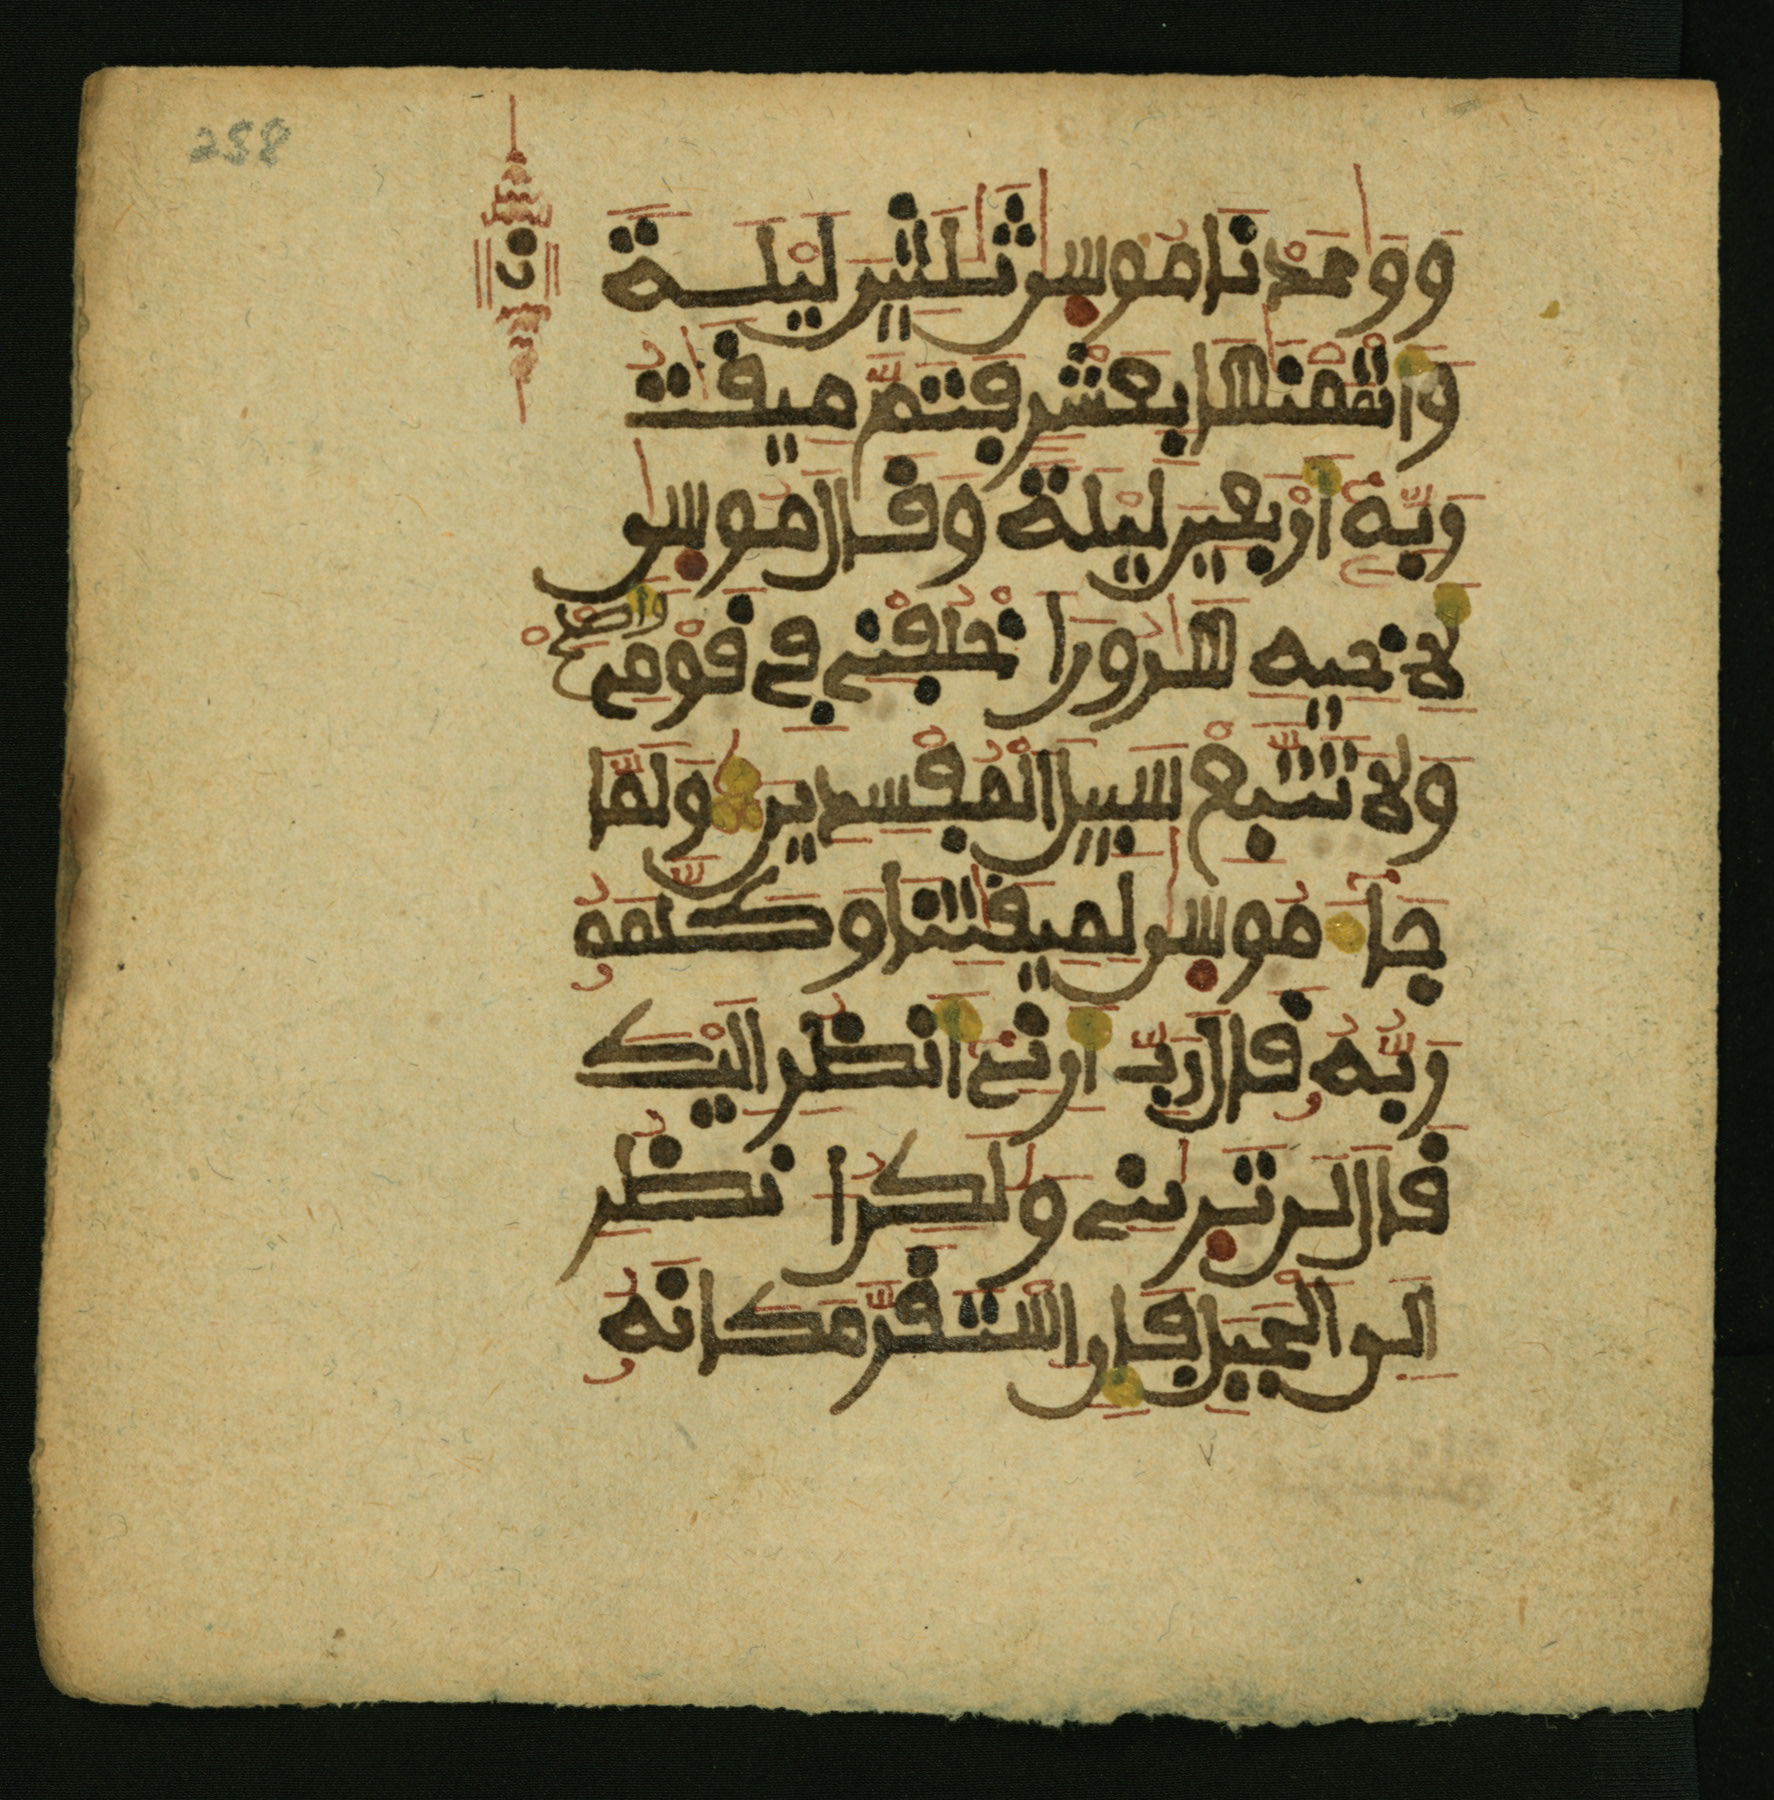 238
ن
وَوَٰعَدْنَا مُوسىٰ ثَلَٰثِينَ لَيْلَةً
وَأَتْمَمْنَٰهَا بِعَشْرٍ فَتَمَّ مِيقَٰتُ
رَبِّهِ أَرْبَعِينَ لَيْلَةً وَقَالَ مُوسىٰ
لِأَخِيهِ هَٰرُونَ اخْلُفْنِے فِے قَوْمِے وَأَصْلِحْ
وَلَا تَتَّبِعْ سَبِيلَ الْمُفْسِدِينَ وَلَمَّا
جَاءَ مُوسىٰ لِمِيقَٰتِنَا وَكَلَّمَهُ
رَبُّهُ قَالَ رَبِّ أَرِنِے أَنظُرْ إِلَيْكَ
قَالَ لَن تَرَىٰنِے وَلَٰكِنُ انظُرْ
إِلَى الْجَبَلِ فَإِنِ اسْتَقَرَّ مَكَانَهُ